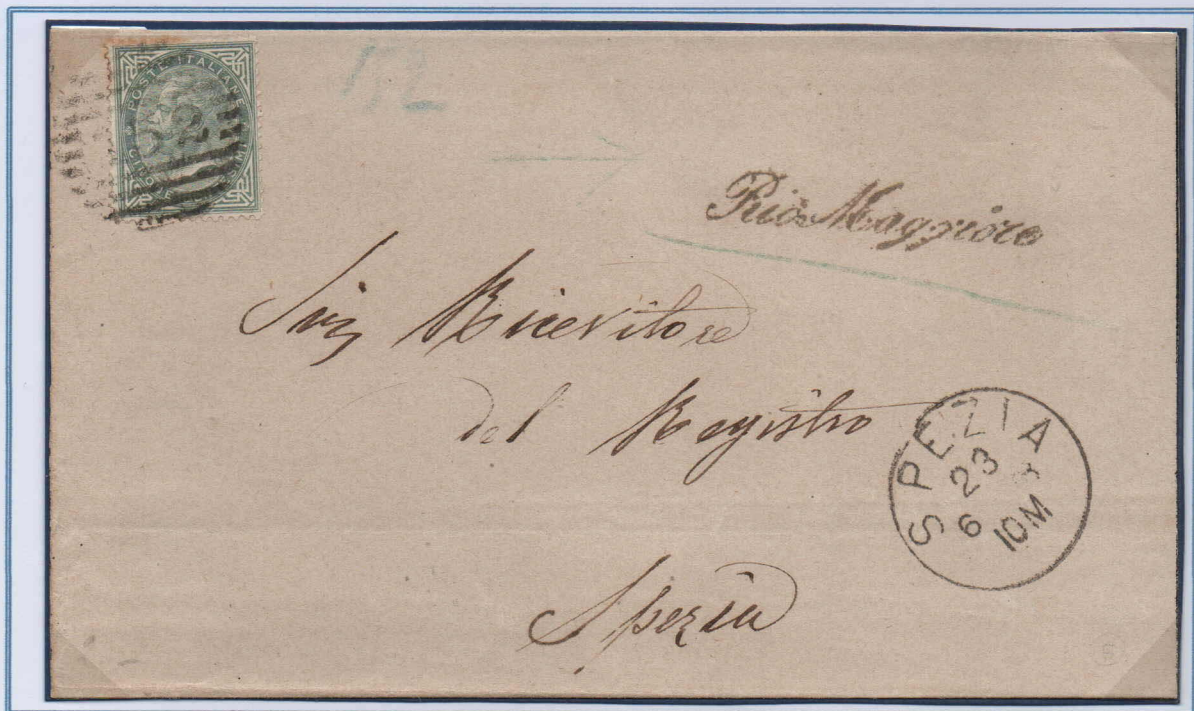 POSTE ITALIANE
Rio Maggiore
Sig Ricevitore
del Registro
Spezia
SPEZIA
23
6
10M